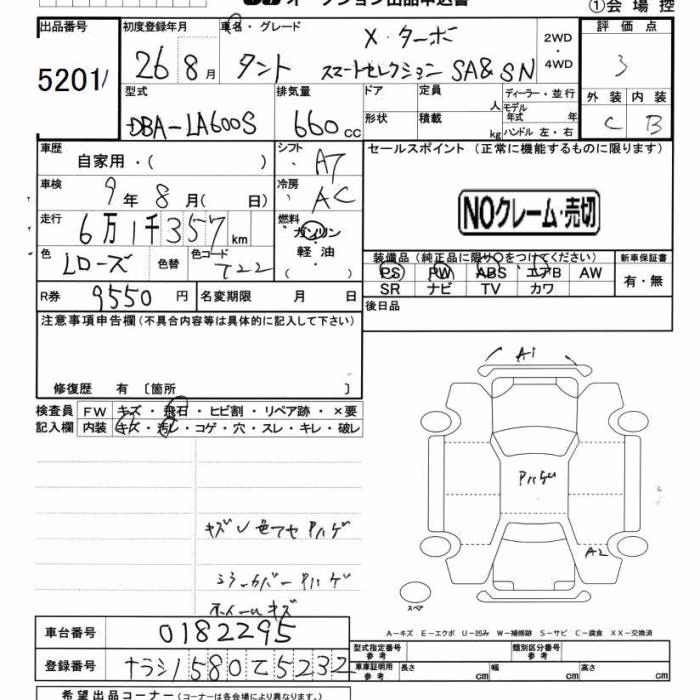 オークション出品申込書
①会場控
出品番号 5201
初度登録年月 26 8月
車名・グレード X・ターボ
タント スマートセレクション SA&SN
2WD・4WD
評価点 3
外装 C 内装 B
型式 DBA-LA600S
排気量 660cc
ドア 形状
定員 人 積載 kg
ディーラー・並行
モデル年式 年
ハンドル 左・右
車歴 自家用・( )
シフト AT
車検 9年8月( 日)
冷房 AC
走行 6万1千357km
燃料 ガソリン 軽油 ( )
色 Lローズ 色替 色コード T22
R券 9550円
名変期限 月 日
セールスポイント (正常に機能するものに限ります)
NOクレーム・売切
装備品(純正品に限り○をつけてください)
PS PW ABS エアB AW
SR ナビ TV カワ
新車保証書
有・無
後日品
注意事項申告欄(不具合内容等は具体的に記入して下さい)
修復歴 有 〔箇所 〕
検査員記入欄
FW キズ・飛石・ヒビ割・リペア跡・×要
内装 キズ・汚レ・コゲ・穴・スレ・キレ・破レ
キズ 色アセ Pハゲ
ミラーカバー Pハゲ
ホイールキズ
A1
Pハゲ
A2
スペア
A-キズ E-エクボ U-凹み W-補修跡 S-サビ C-腐食 XX-交換済
車台番号 0182295
登録番号 ナラシ1580て5232
型式指定番号 参考
類別区分番号 参考
車庫証明用 参考 長さ cm 幅 cm 高さ cm
希望出品コーナー(コーナーは各会場により異なります。)